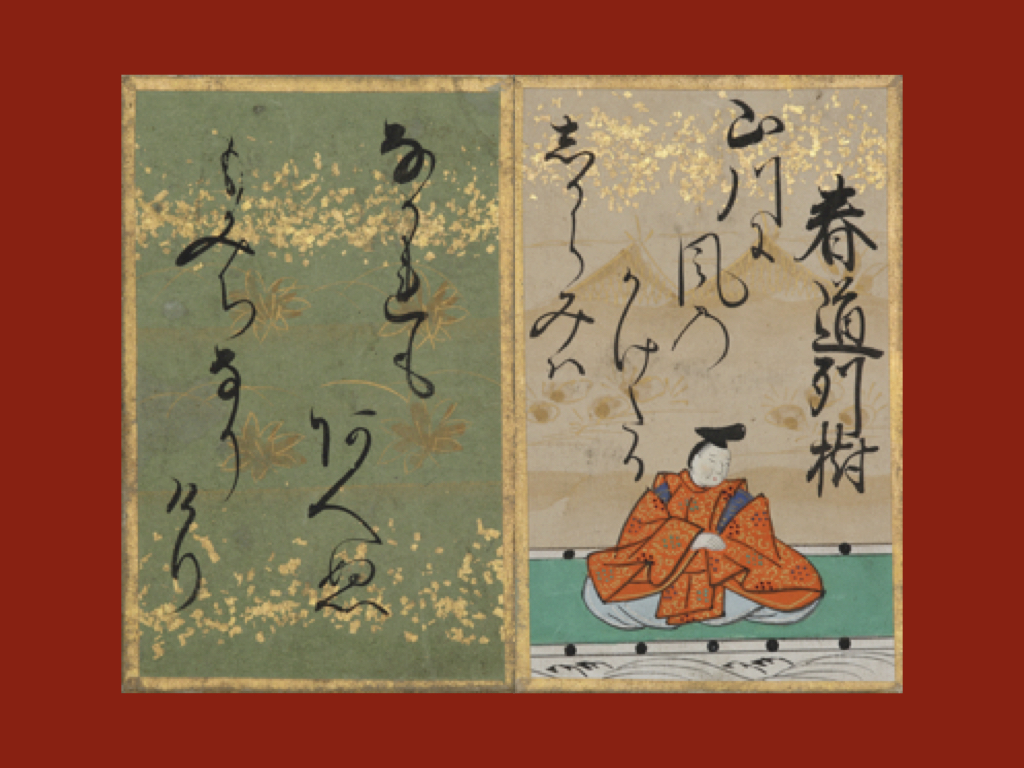 春道列樹
山川に
風の
かけたる
しからみハ
なかれも
あへぬ
もみち
なり
けり